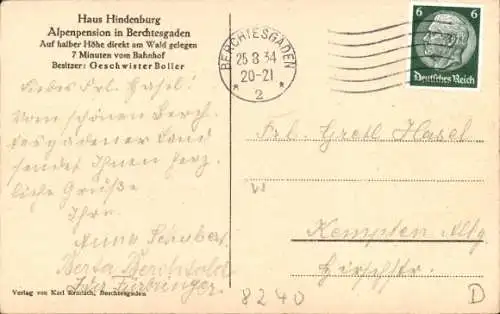 Haus Hindenburg
Alpenpension in Berchtesgaden
Auf halber Höhe direkt am Wald gelegen
7 Minuten vom Bahnhof
Besitzer: Geschwister Boller
BERCHTESGADEN
25.8.34
20-21
2
6 6
Deutsches Reich
Liebes Frl. Hasel!
Vom schönen Berch-
tesgadener Land
sendet Ihnen herz-
liche Grüße
Ihre
Anna
Berta Berchtold
Frl. Gretl Hasel
W
Kempten Allg
Hirschstr.
8240
D
Verlag von Karl Ermisch, Berchtesgaden